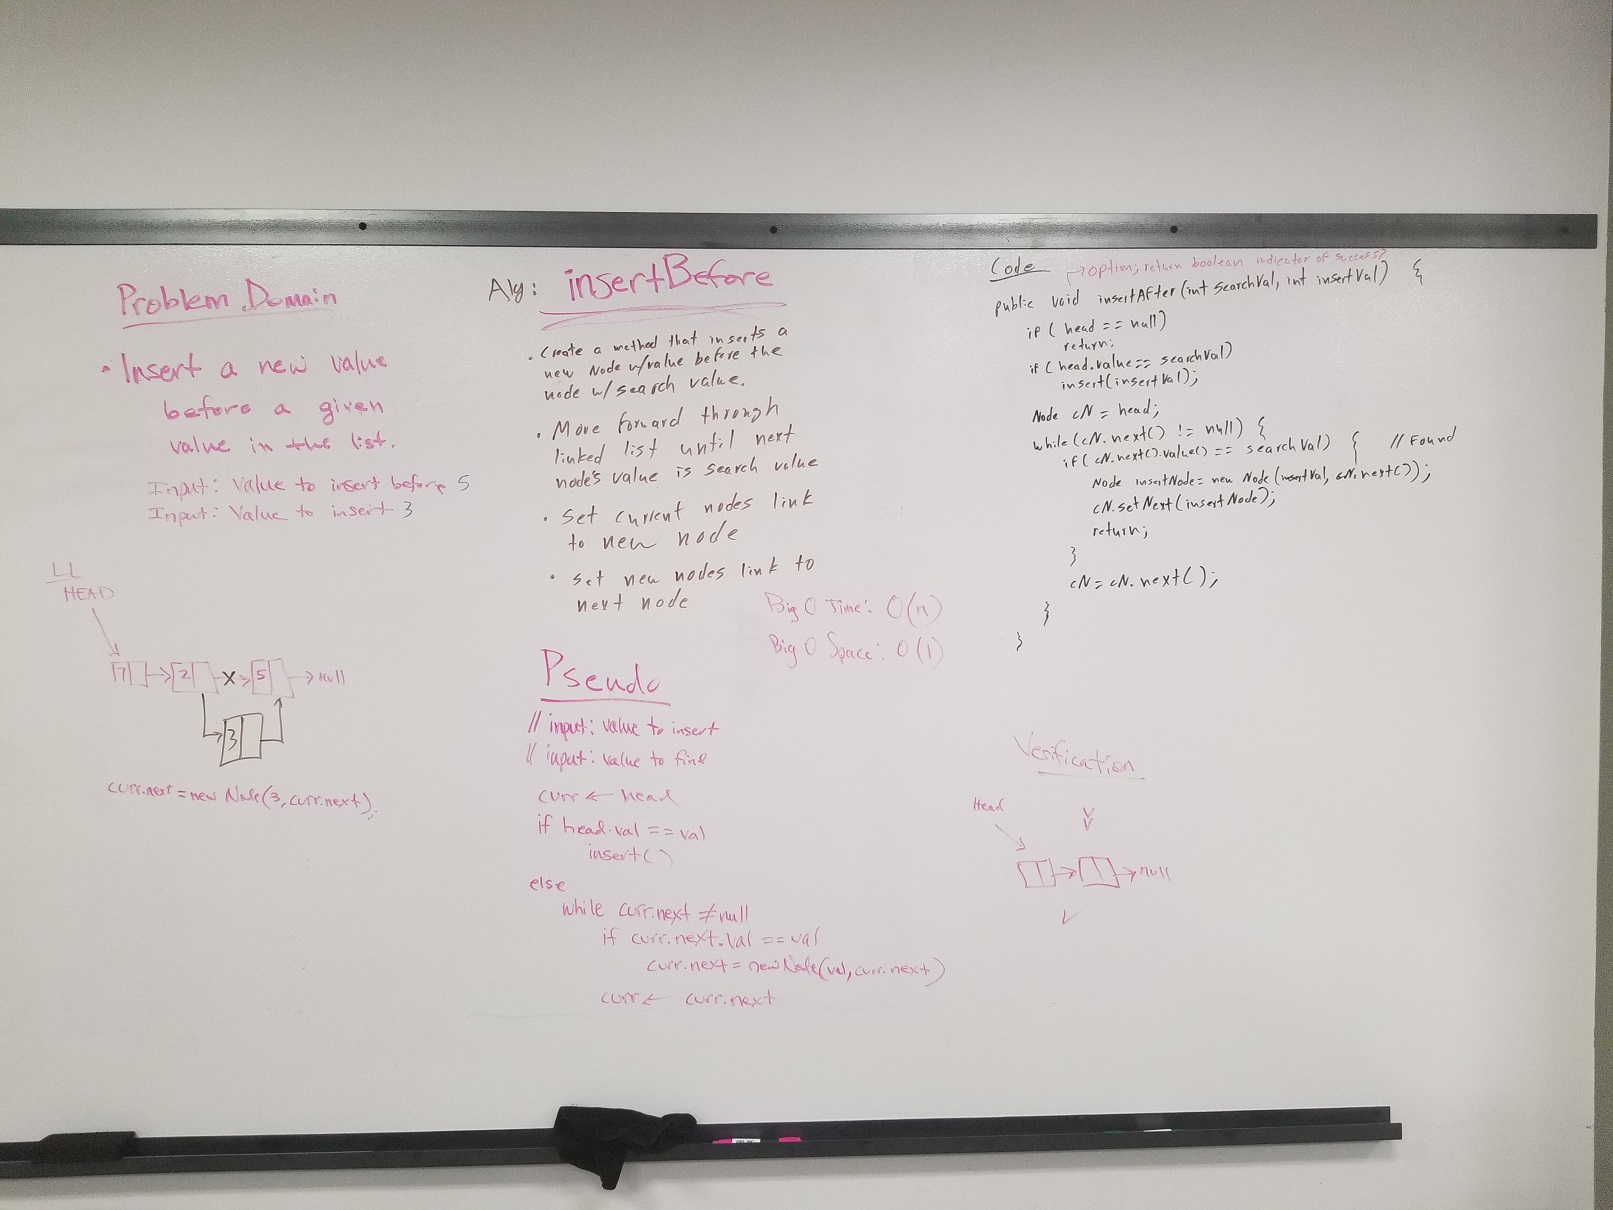 Problem Domain
• Insert a new value
before a given
value in the list.
Input: Value to insert before 5
Input: Value to insert 3
LL
HEAD
7 2 X 5 null
3
curr.next = new Node(3, curr.next);
Alg: insertBefore
• Create a method that inserts a
new Node w/value before the
node w/search value.
• Move forward through
linked list until next
node's value is search value
• Set current nodes link
to new node
• set new nodes link to
next node
Big O Time: O(n)
Big O Space: O(1)
Pseudo
// input: value to insert
// input: value to find
curr ← head
if head.val == val
insert()
else
while curr.next ≠ null
if curr.next.val == val
curr.next = new Node(val, curr.next)
curr ← curr.next
Code
→option; return boolean indicator of success?
public void insertAfter(int searchVal, int insertVal) {
if ( head == null)
return;
if (head.value == searchVal)
insert(insertVal);
Node cN = head;
while (cN.next() != null) {
if ( cN.next().value() == searchVal) { // Found
Node insertNode = new Node (insertVal, cN.next());
cN.setNext(insertNode);
return;
}
cN = cN.next();
}
}
Verification
Head
null